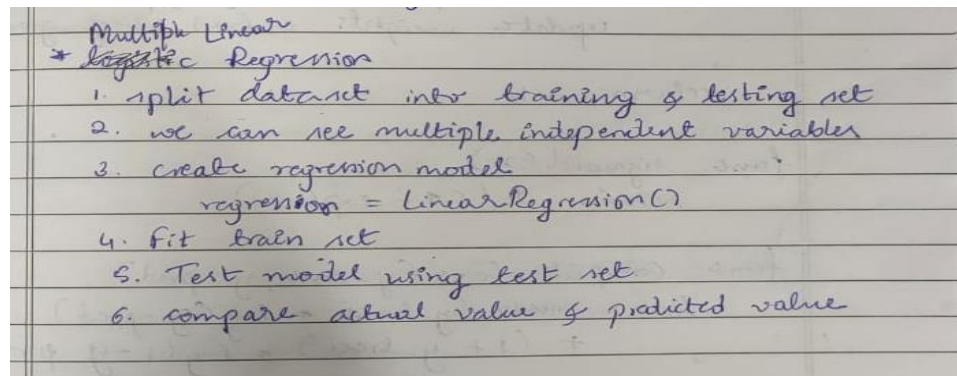 Multiple Linear
* logistic Regression
1. split dataset into training & testing set
2. we can see multiple independent variables
3. create regression model
regression = LinearRegression()
4. fit train set
5. Test model using test set
6. compare actual value & predicted value